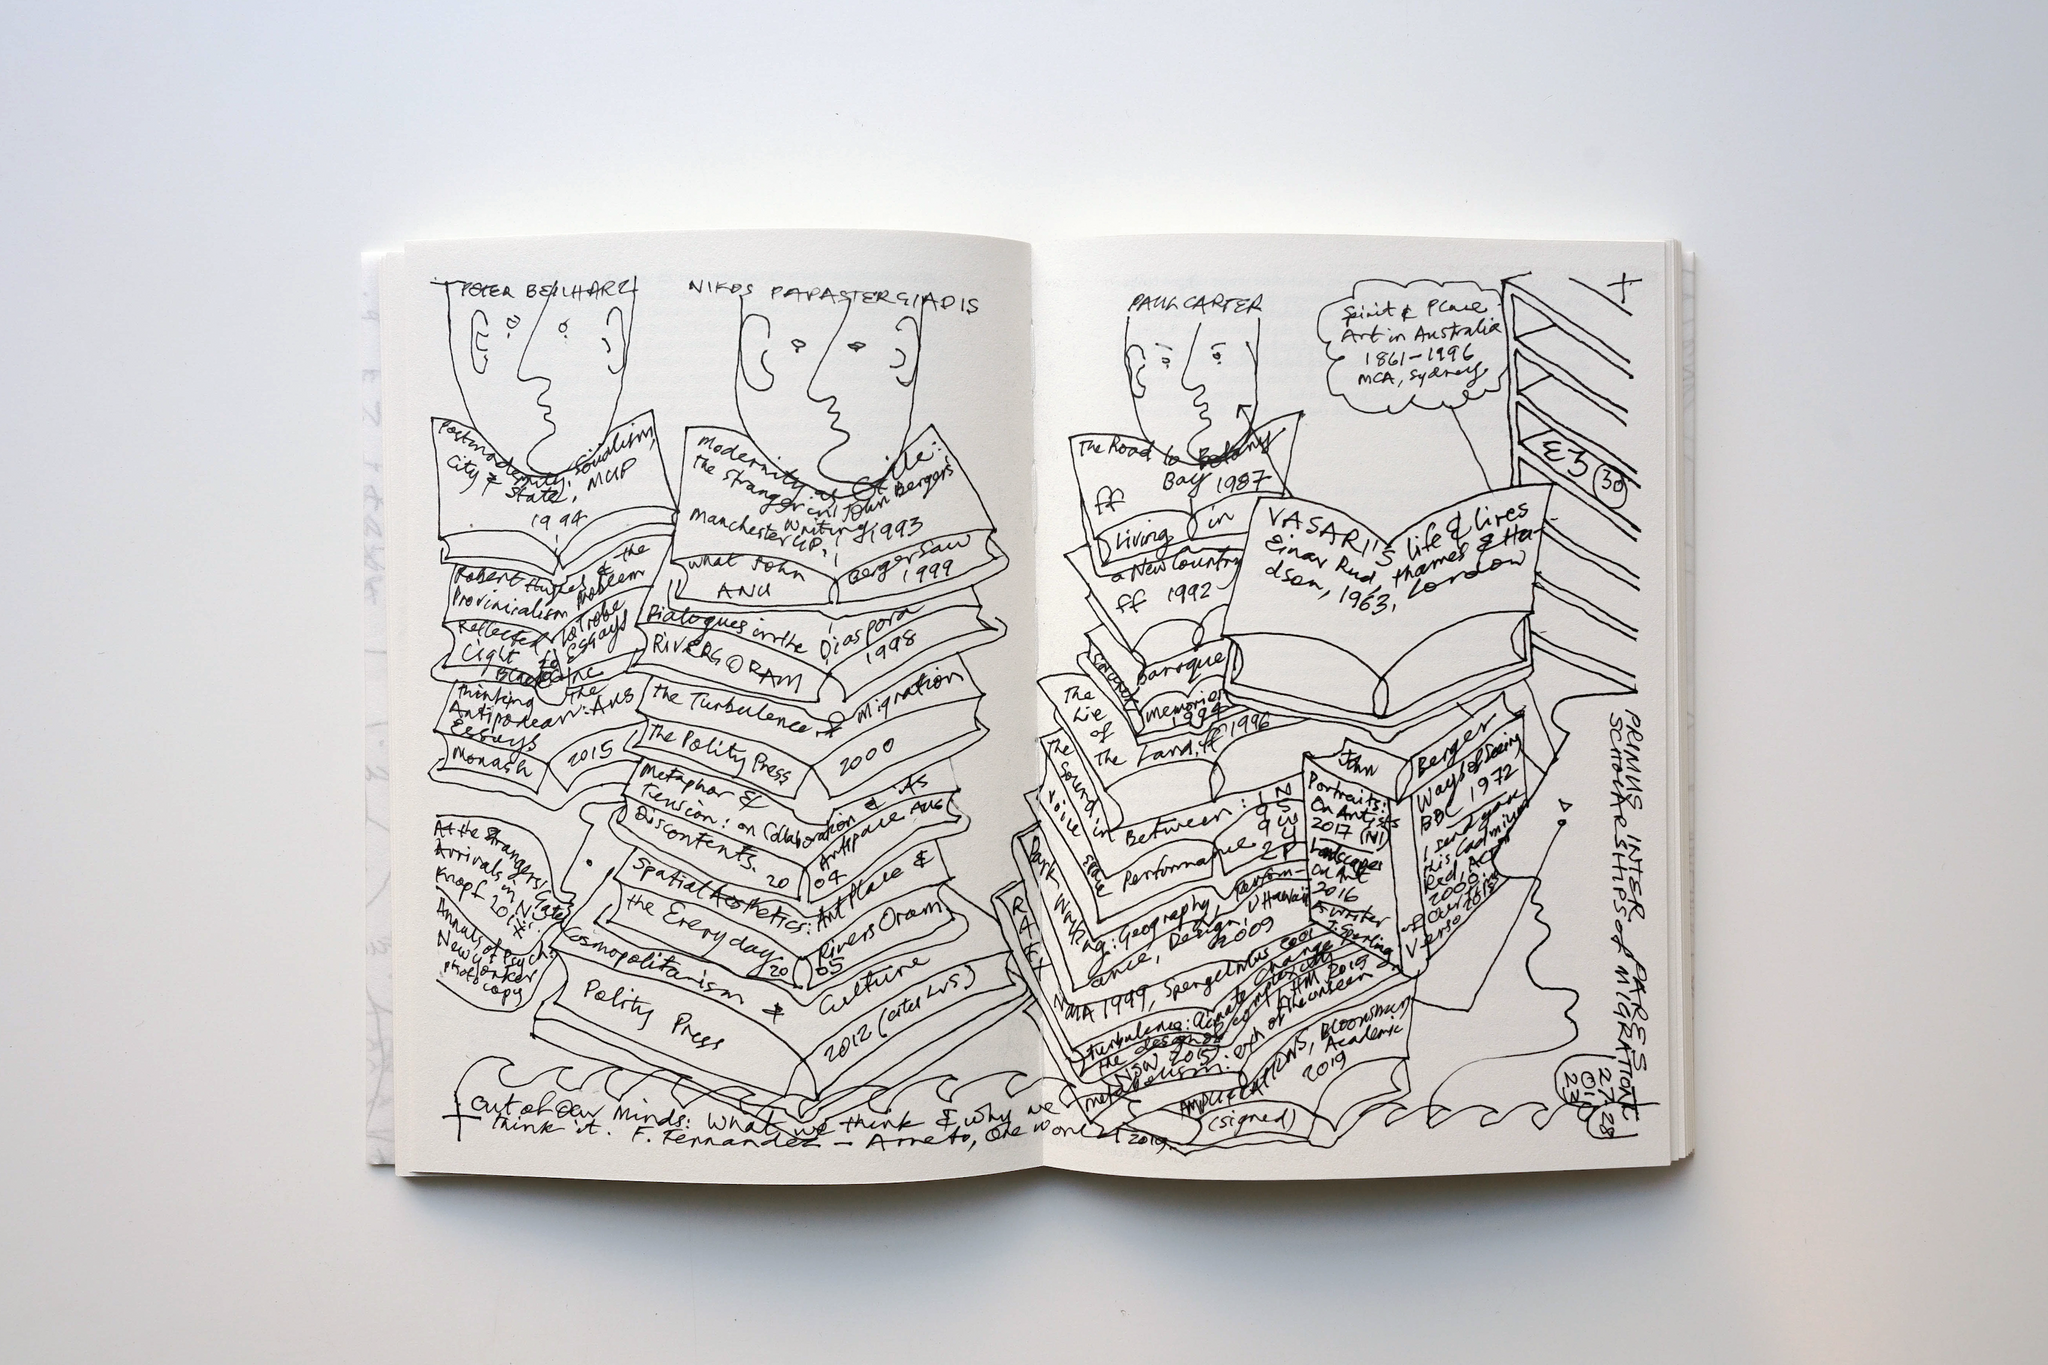 PETER BEILHARZ
Postmodernity, Socialism,
City & State, MUP
1994
Robert Hughes & the
Provincialism Problem
Reflected
Light
La Trobe
Essays
Thinking
the
Antipodean: Aus
Essays
Monash
2015
At the Strangers'
Gate
Arrivals in NY.
Knopf 2017
Annals of Psych:
New Yorker
photocopy
NIKOS PAPASTERGIADIS
Modernity as Exile:
the stranger in John Berger's
writing
Manchester UP, 1993
What John
Berger Saw
ANU
1999
Dialogues in the Diaspora
RIVERS ORAM
1998
The Turbulence of Migration
The Polity Press
2000
Metaphor &
Tension: on Collaboration & its
Discontents. 20
04
Artspace Aus
Spatial Aesthetics: Art Place &
the Everyday 20
05
Rivers Oram
Cosmopolitanism & Culture
Polity Press
2012
Out of Our Minds: What we think & why we
think it. F. Fernandez-Armesto, One World 2019.
PAUL CARTER
The Road to Botany
Bay 1987
ff
Living in
a New Country
ff 1992
Baroque
Memories
1994
The
Lie
of
The Land, ff 1996
The
Sound
in
Between:
Voice
Space
Performance
Dark Writing: Geography, Perform-
ance, Design, U Hawaii
2009
NMA 1999, Spengelmus 2001
Turbulence: Climate Change
& the design of complexity
NSW 2015
Metabolism:
of the unseen
AMPLIFICATIONS, Bloomsbury
Academic
2019
(signed)
Spirit & Place
Art in Australia
1861-1996
MCA, Sydney
VASARI'S life & lives
Einar Rud, Thames & Hu-
dson, 1963, London
John
Berger
Portraits:
On Artists
2017
Landscapes
on Art
2016
A writer
Ways of Seeing
BBC 1972
I send you
this Cadmium
Red
2000
Verso
£3
30
PRIMUS INTER PARES
SCHOLARSHIPS of MIGRATION